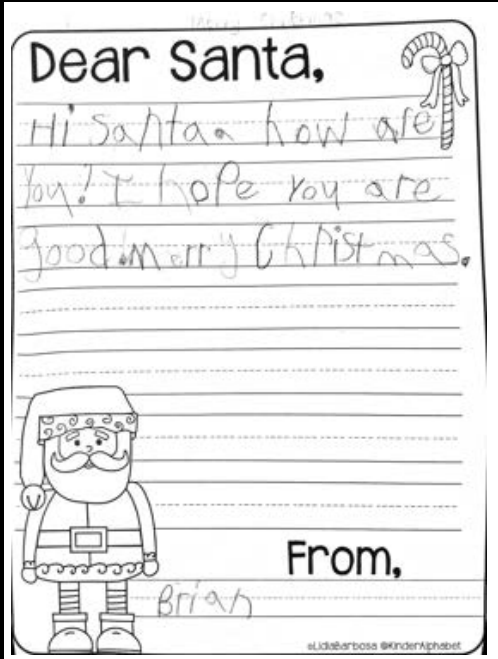 Dear Santa,
Hi Santa. how are
you? I hope you are
good. merry Christmas.
From,
Brian
©LidiaBarbosa @KinderAlphabet